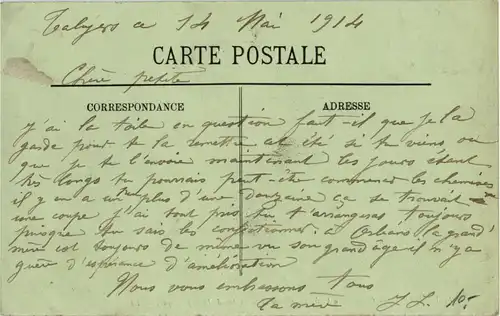 ce 14 Mai 1914
CARTE POSTALE
Chère petite
CORRESPONDANCE
ADRESSE
j'ai la toile en question faut-il que je la
garde pour te la remettre cet été si tu viens ou
que je te l'envoie maintenant les jours étant
très longs tu pourrais peut-être commencer les chemises
il y en a un peu plus d'une douzaine ça se trouvait
une coupe j'ai tout pris tu t'arrangeras toujours
puisque tu sais les confectionner. à Orléans la grand'
mère est toujours de même vu son grand âge il n'y a
guère d'espérance d'amélioration
Nous vous embrassons tous
ta mère
10-